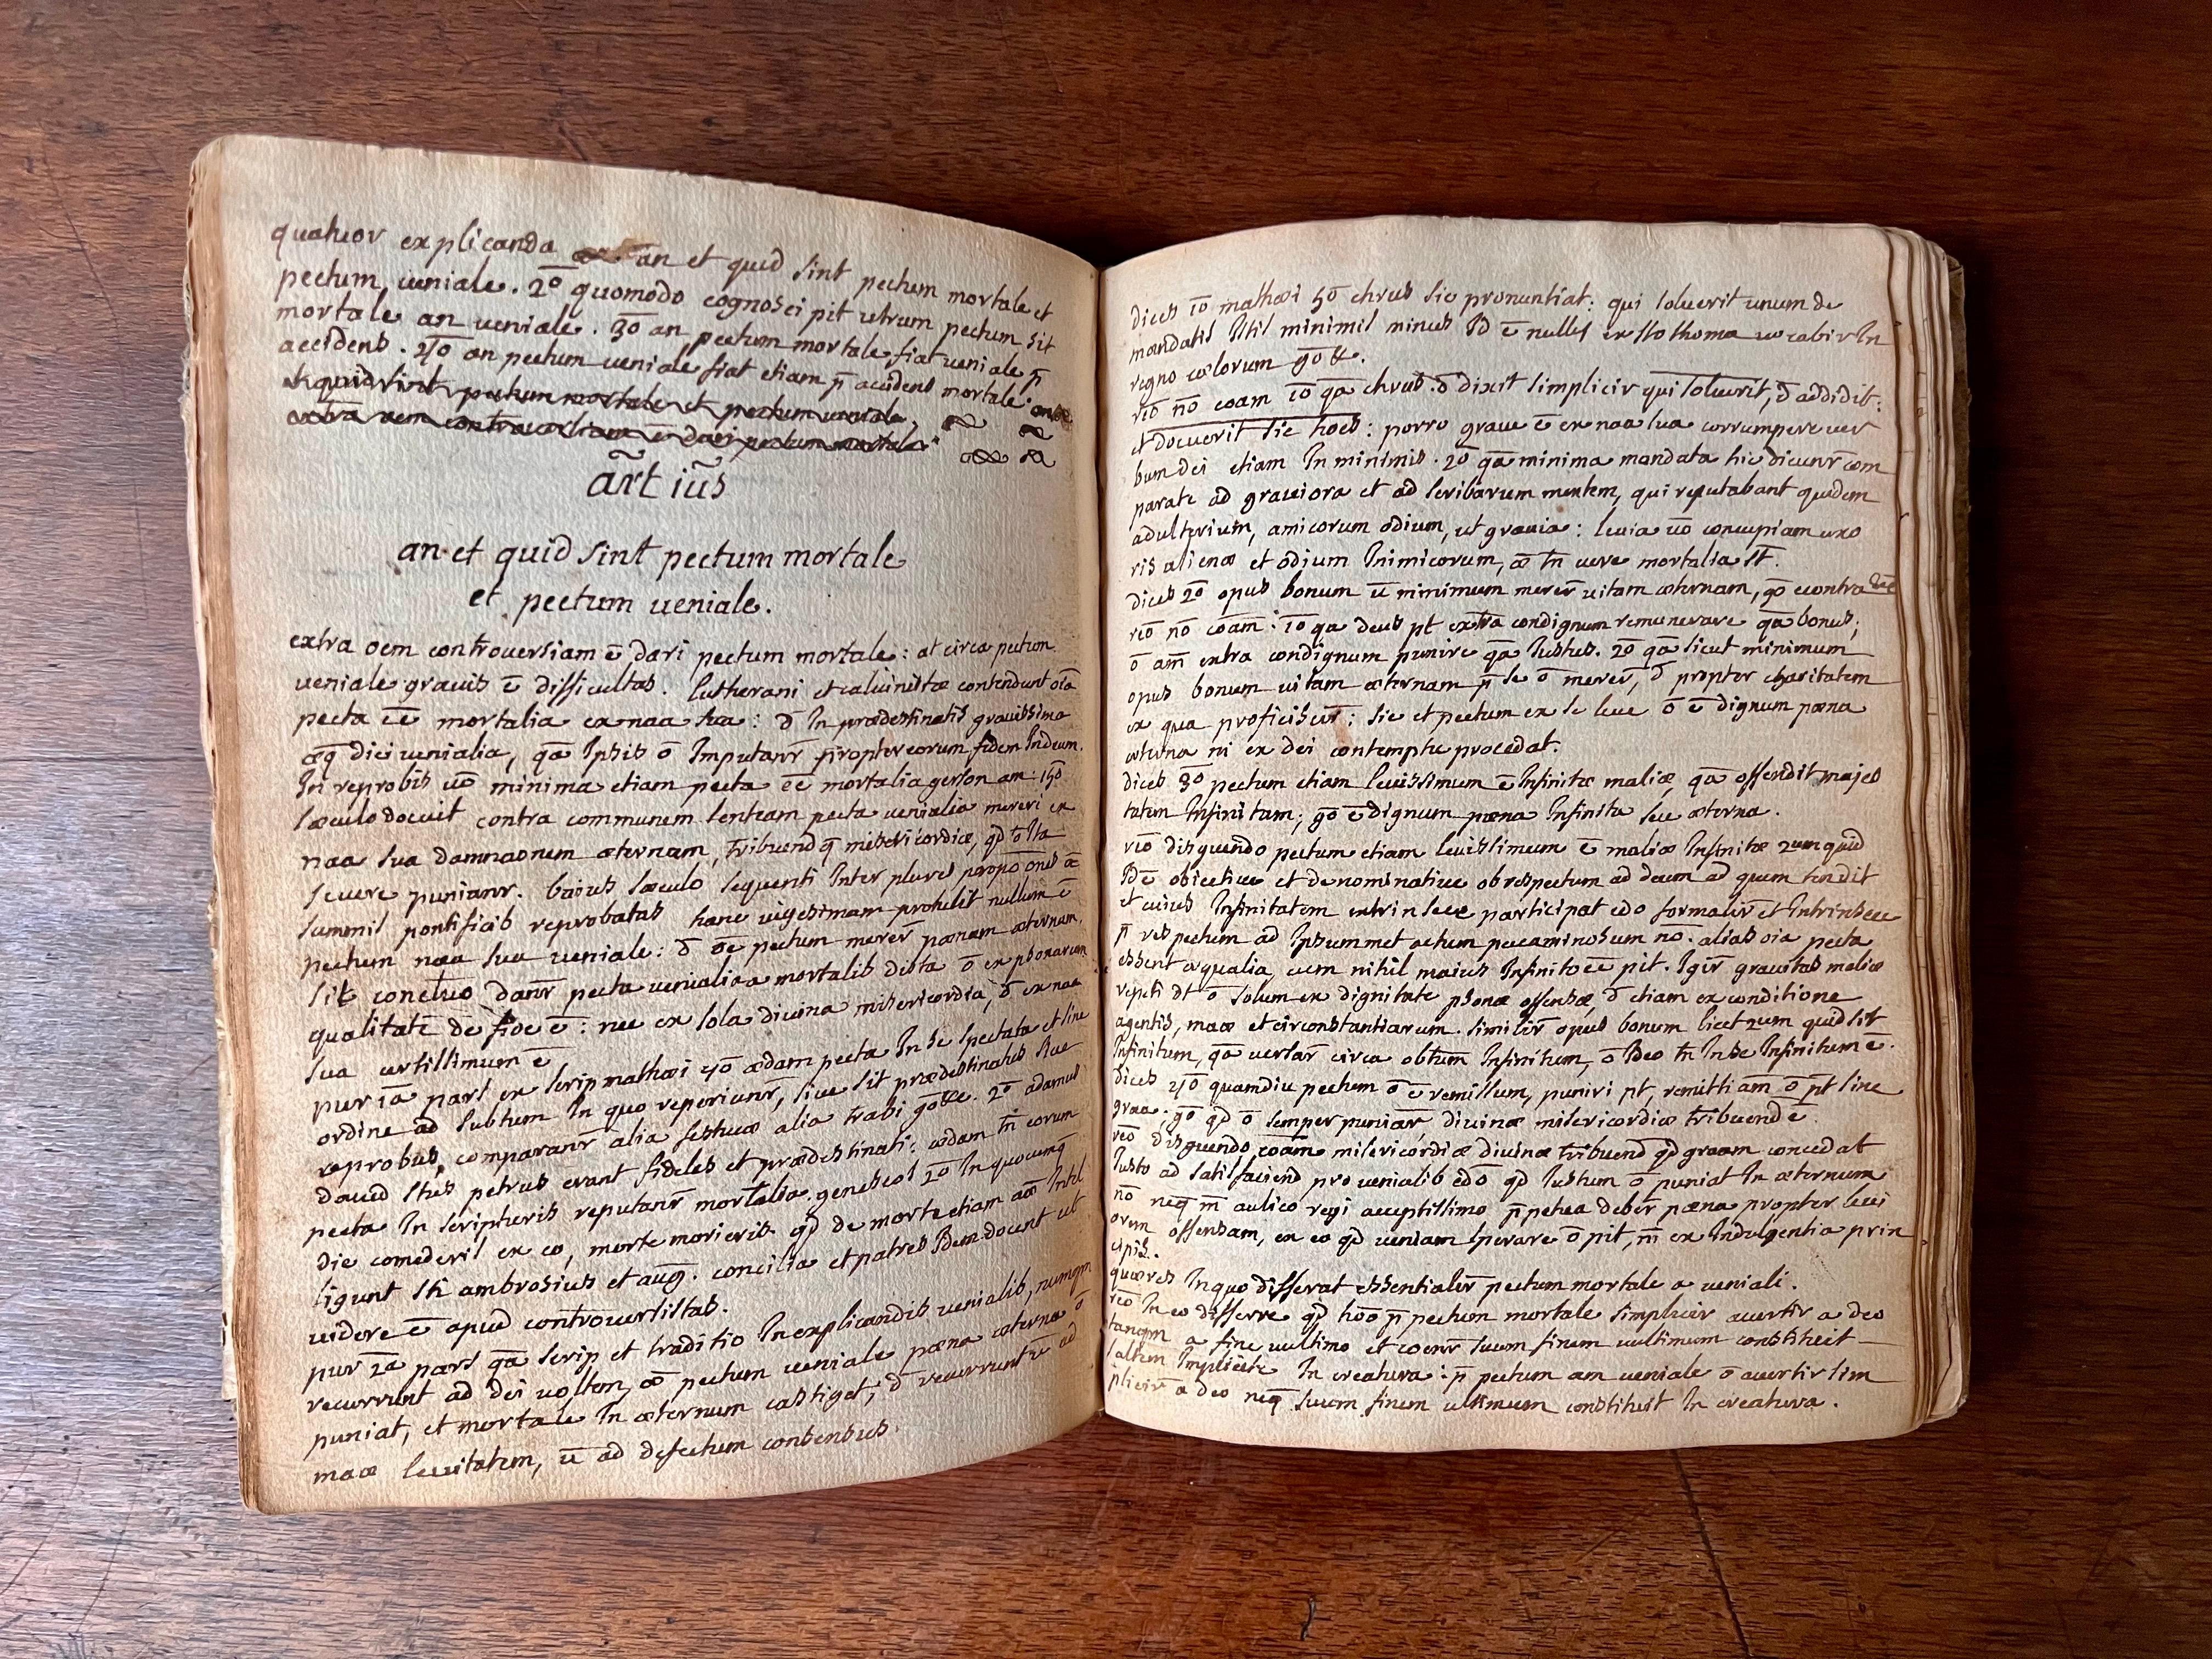 quatuor explicanda an et quid sint pectum mortale et
pectum veniale. 2o quomodo cognosci pit utrum pectum sit
mortale an veniale. 3o an pectum mortale fiat veniale p̄
accidens. 4o an pectum veniale fiat etiam p̄ accidens mortale.
et quid sint pectum mortale et pectum veniale
extra oem controversiam ē dari pectum mortale
ārt iūs
an et quid sint pectum mortale
et pectum veniale.
extra oem controversiam ē dari pectum mortale: at circa pectum
veniale gravis ē difficultas. lutherani et calvinistæ contendunt oīa
pecta ēē mortalia ex naa sua: s̄ In prædestinatis gravissima
æq̄ dici venialia, qā Ipsis ō Imputanr̄ propter eorum fidem In deum.
In reprobis v̄o minima etiam pecta ēē mortalia gerson am 15o
sæculo docuit contra communem sentēam pecta venialia mereri ex
naa sua damnaonem æternam, tribuend q̄ misericordiæ, qd̄ ō Ita
severe punianr. baius sæculo sequenti Inter plures propoōnes a
summis pontificib reprobatas hanc vigesimam protulit nullum ē
pectum naa sua veniale: s̄ oē pectum merer̄ pœnam æternam.
sit concluo danr̄ pecta venialia a mortalib dista ō ex psonarum
qualitatē de fide ē: nec ex sola divina misericordia, s̄ ex naa
sua certissimum ē
pur 1ā pars ex scrip mathæi 7o ædam pecta In se spectata et sine
ordine ad subtum In quo reperiunr̄, sive sit prædestinatus sive
reprobus, comparanr̄ alia festucæ alia trabi gō &c. 2o adamus
david stus petrus erant fideles et prædestinati: ædam tn̄ eorum
pecta In scripturis reputanr̄ mortalia. geneseos 2o In quocumq̄
die comederis ex eo, morte morieris qd̄ de morte etiam aæ Intel
ligunt sti ambrosius et aug. concilia et patres Idem docent ut
videre ē apud controvertistas.
pur 2ā pars qā scrip et traditio In explicandis venialib, numqm
recurrunt ad dei voltem, ōō pectum veniale pœna æterna ō
puniat, et mortale In æternum castiget; s̄ recurrunt v̄ ad
maæ levitatem, v̄ ad defectum consensus.
dices 1o mathæi 5o chrus sic pronuntiat: qui solverit unum de
mandatis Istis minimis minus Id ē nullus ex sto thoma vocabir In
regno cœlorum gō &c.
reō nō coam 1o qā chrus ō dixit simplicir qui solverit, s̄ addidit:
et docuerit sic hoes: porro grave ē ex naa sua corrumpere ver
bum dei etiam In minimis. 2o qā minima mandata hic dicunr̄ com
parate ad graviora et ad scribarum mentem, qui reputabant quidem
adulterium, amicorum odium, ut gravia: levia v̄o concupiam uxo
ris alienæ et odium Inimicorum, æ tn̄ vere mortalia st̄.
dices 2o opus bonum v̄ minimum merer̄ vitam æternam, gō e contra
reō nō coam: 1o qa deus pt extra condignum remunerare qā bonus;
ō am̄ extra condignum punire qā Iustus. 2o qā sicut minimum
opus bonum vitam æternam p̄ se ō merer̄, s̄ propter charitatem
ex qua proficiscir̄; sic et pectum ex se leve ō ē dignum pœna
æterna ni ex dei contemptu procedat.
dices 3o pectum etiam levissimum ē Infinitæ maliæ, qā offendit majes
tatem Infinitam; gō ē dignum pœna Infinita seu æterna.
reō disguendo pectum etiam levissimum ē maliæ Infinitæ 2um quid
Id ē obiective et denominative ob respectum ad deum ad quem tendit
et cuius Infinitatem extrinsece participat cdo formalir et Intrinsece
p̄ respectum ad Ipsummet actum peccaminosum nō. alias oia pecta
essent æqualia, cum nihil maius Infinito ēē pit. Igir̄ gravitas maliæ
repeti dt ō solum ex dignitate psonæ offensæ, s̄ etiam ex conditione
agentis, maæ et circonstantiarum. similir̄ opus bonum licet 2um quid sit
Infinitum, qā versar̄ circa obtum Infinitum, ō Ideo tn̄ In se Infinitum ē.
dices 4o quamdiu pectum ō ē remissum, puniri pt, remitti am̄ ō pt sine
graa. gō qd̄ ō semper puniar̄, divinæ misericordiæ tribuend ē.
reō disguendo coam misericordiæ divinæ tribuend qd̄ graam concedat
Iusto ad satisfaciend pro venialib cdō qd̄ Iustum ō puniat In æternum
nō neq̄ m̄ aulico regi acceptissimo p̄petua deber̄ pœna propter levi
orem offensam, ex eo qd̄ veniam sperare ō pit, nī ex Indulgentia prin
cipis.
quæres In quo differat essentialir̄ pectum mortale a veniali.
reō In eo differre qd̄ hoō p̄ pectum mortale simplicir avertir a deo
tanqm a fine ultimo et coenr̄ suum finem ultimum constituit
saltem Implicite In creatura: p̄ pectum am veniale ō avertir sim
plicir̄ a deo neq̄ suum finem ultimum constituit In creatura.